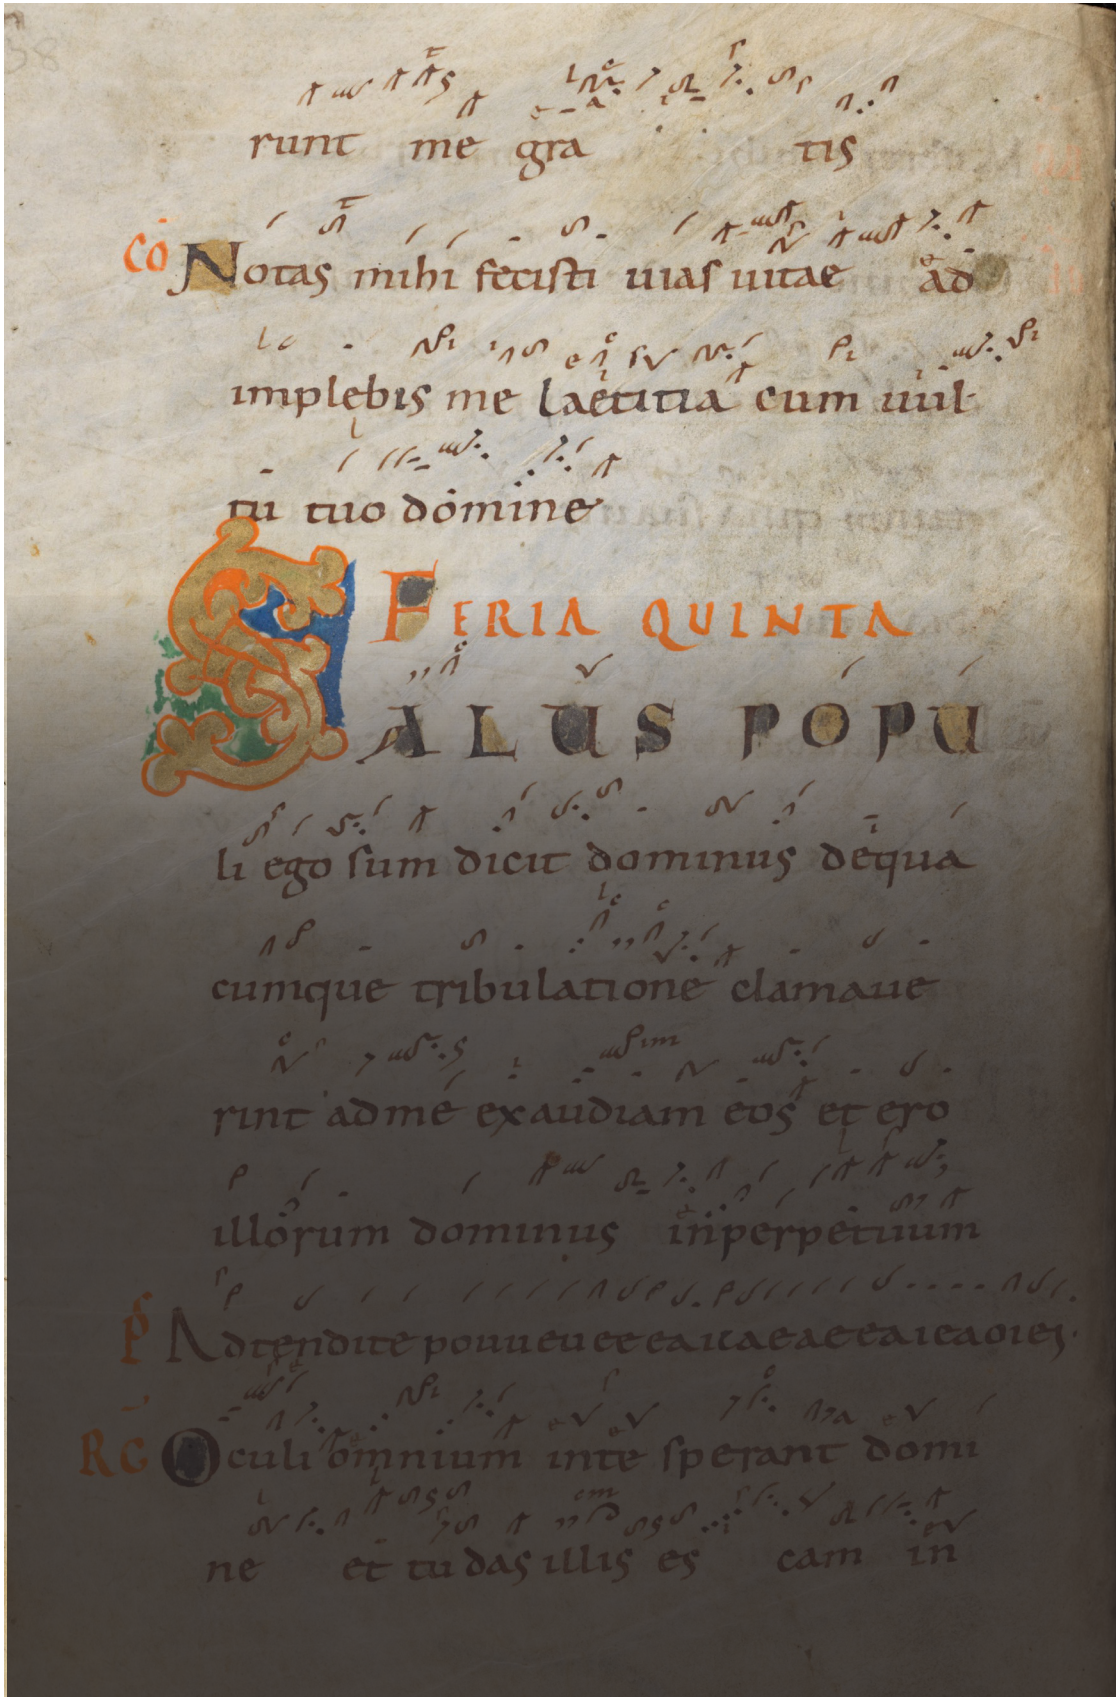 runt me gra tis
CO Notas mihi fecisti uias uitae ad
implebis me laetitia cum uul
tu tuo domine
FERIA QUINTA
SALUS POPU
li ego sum dicit dominus dequa
cumque tribulatione clamaue
rint ad me exaudiam eos et ero
illorum dominus inperpetuum
PS Adtendite
RG Oculi omnium inte sperant domi
ne et tu das illis es cam in